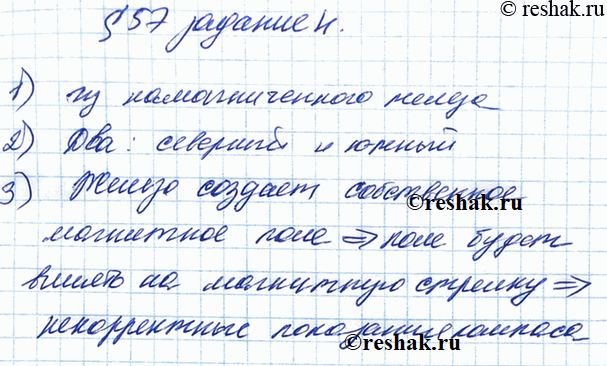 © reshak.ru
§57 задание 4.
1) из намагниченного железа
2) Два: северный и южный
3) Железо создает собственное
reshak.ru
магнитное поле => поле будет
влиять на магнитную стрелку =>
некорректные показания компаса
reshak.ru